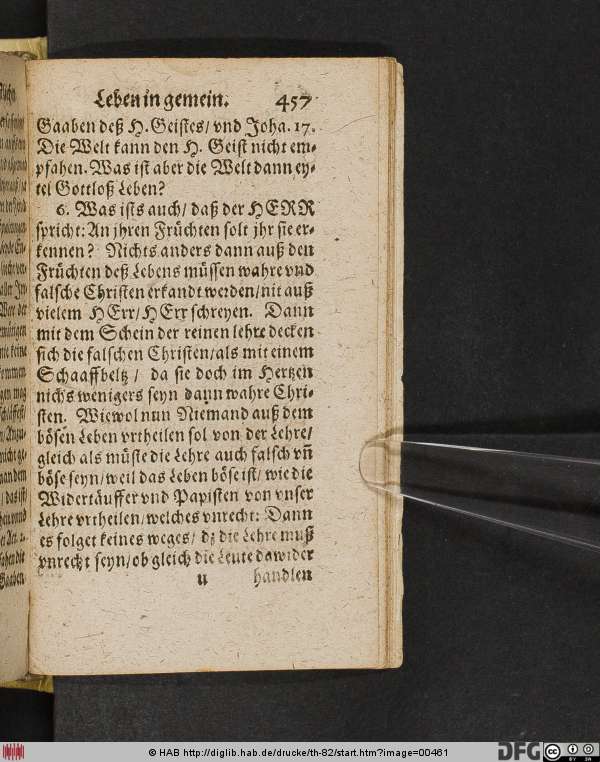 Leben in gemein. 457
Gaaben deß H. Geistes/ vnd Joha. 17.
Die Welt kann den H. Geist nicht em-
pfahen. Was ist aber die Welt dann ey-
tel Gottloß Leben?
6. Was ists auch/ daß der HERR
spricht: An jhren Früchten solt jhr sie er-
kennen? Nichts anders dann auß den
Früchten deß Lebens müssen wahre vnd
falsche Christen erkandt werden/ nit auß
vielem HErr/ HErr schreyen. Dann
mit dem Schein der reinen lehre decken
sich die falschen Christen/ als mit einem
Schaaffbeltz/ da sie doch im Hertzen
nichs wenigers seyn dann wahre Chri-
sten. Wiewol nun Niemand auß dem
bösen Leben vrtheilen sol von der Lehre/
gleich als müste die Lehre auch falsch vñ
böse seyn/ weil das Leben böse ist/ wie die
Widertäuffer vnd Papisten von vnser
Lehre vrtheilen/ welches vnrecht: Dann
es folget keines weges/ dz die Lehre muß
vnrecht seyn/ ob gleich die Leute dawider
u handlen
© HAB http://diglib.hab.de/drucke/th-82/start.htm?image=00461
DFG
cc BY SA